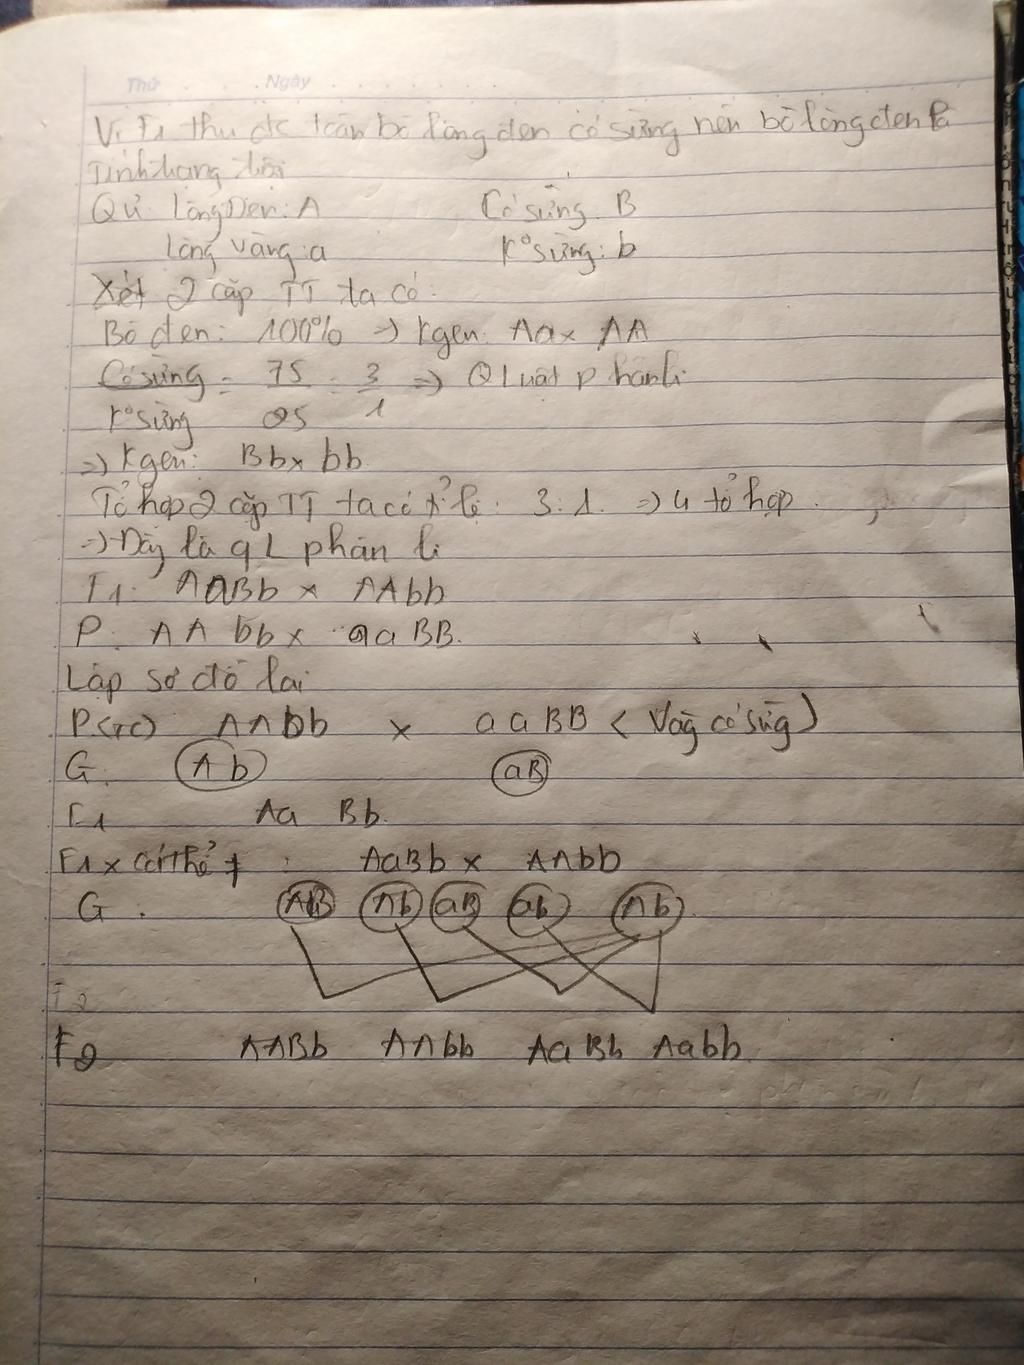 Thứ Ngày
Vì F1 thu đc toàn bò lông đen có sừng nên bò lông đen là
Tính trạng trội
QƯ: Lông Đen: A Có sừng: B
Lông vàng: a K° sừng: b
Xét 2 cặp TT ta có:
Bò đen: 100% => Kgen: Aa x AA
Có sừng = 75 = 3 => Q Luật phân li
K° sừng 25 1
=> Kgen: Bb x bb
Tổ hợp 2 cặp TT ta có tỉ lệ: 3:1. => 4 tổ hợp.
=> Đây là qL phân li
F1: AaBb x AAbb
P: AA bb x aa BB.
Lập sơ đồ lai
P(TC) AAbb x aaBB (Vàg có sừg)
G: Ab aB
F1 Aa Bb.
F1 x cá thể ≠ : AaBb x AAbb
G: AB Ab aB ab Ab
F2
F2 AABb AAbb AaBb Aabb